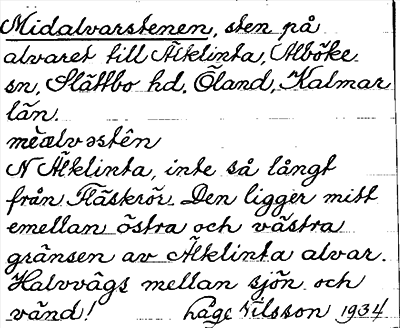 Midalvarstenen, sten på
alvaret till Äleklinta, Alböke
sn, Slättbo hd, Öland, Kalmar
län.
N Äleklinta, inte så långt
från Fläskrör. Den ligger mitt
emellan östra och västra
gränsen av Äleklinta alvar.
Halvvägs mellan sjön och
vänd! Låge Nilsson 1934